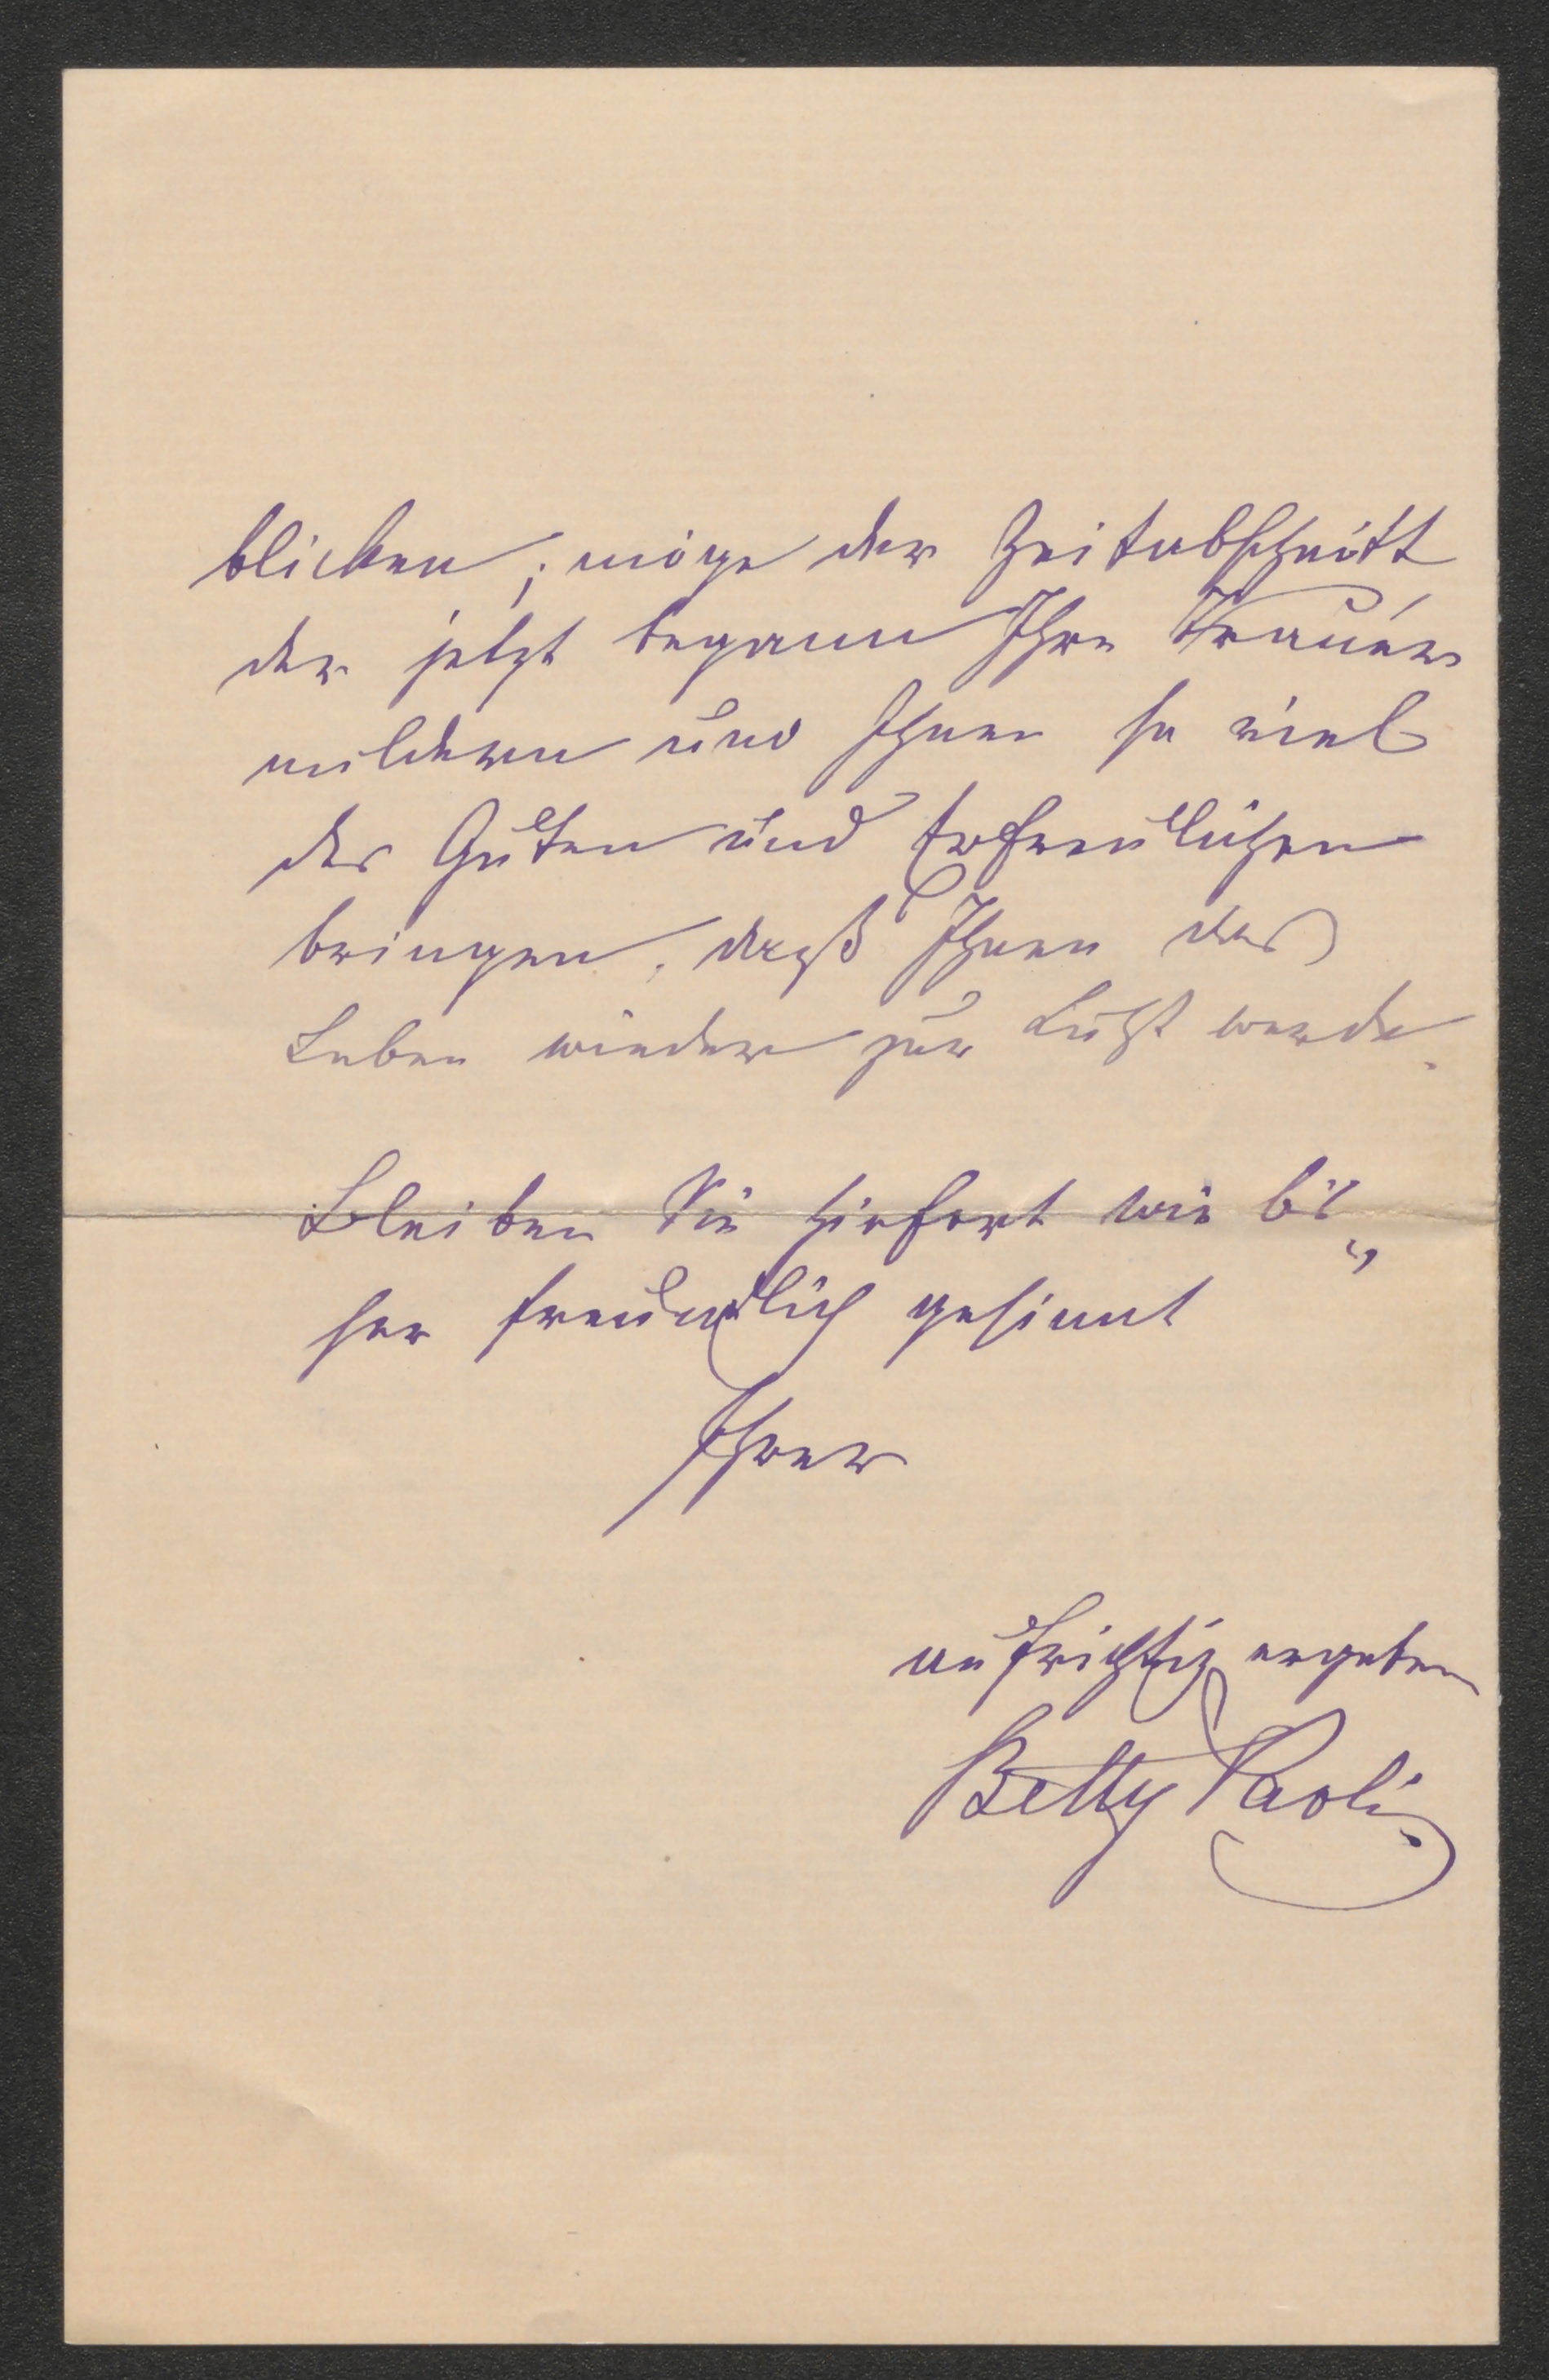 blicken; möge der Zeitabschnitt
der jetzt begann Ihre Trauer
mildern und Ihnen so viel
des Guten und Erfreulichen
bringen, daß Ihnen das
Leben wieder zur Lust werde.
Bleiben Sie hinfort wie bis„
her freundlich gesinnt
Ihrer
aufrichtig ergebenen
Betty Paoli